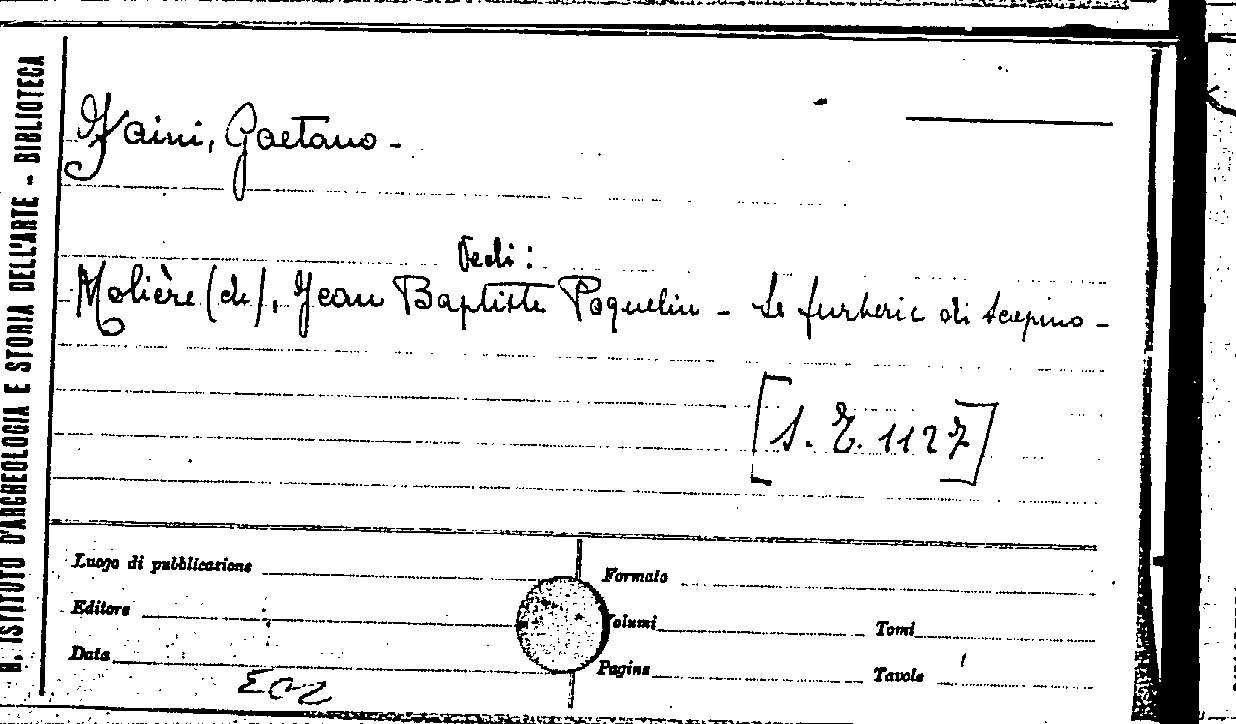 R. ISTITUTO D'ARCHEOLOGIA E STORIA DELL'ARTE - BIBLIOTECA
Zaini, Gaetano -
Vedi:
Molière (de), Jean Baptiste Poquelin - Le furberie di Scapino -
[S. T. 1127]
Luogo di pubblicazione
Formato
Editore
Volumi
Tomi
Data
Pagine
Tavole